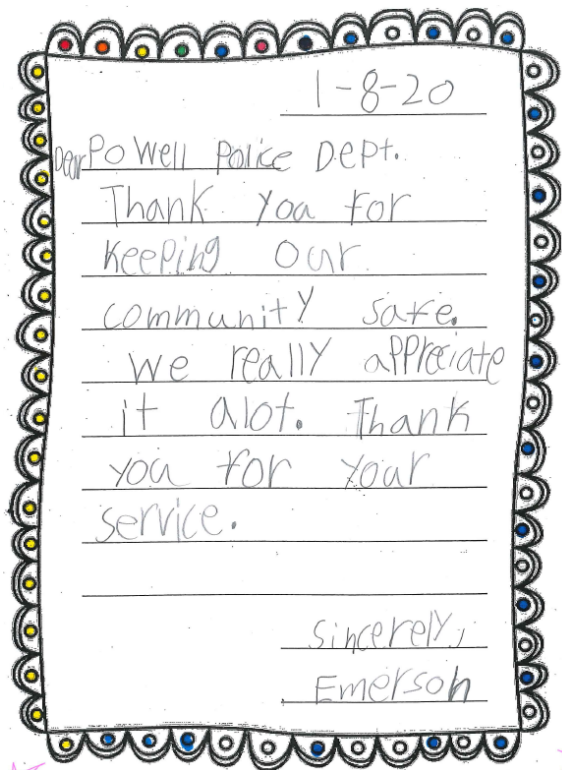 1-8-20
Dear Powell Police Dept.
Thank you for
keeping our
community safe.
We really appreciate
it alot. Thank
you for your
service.
Sincerely,
Emerson